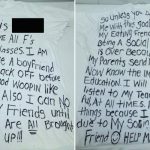 is
ve All F's
lasses. I AM
e A boyfriend
ack OFF before
od Woopin like
Also I can NO
Friends until
Are All Brought
up!!!
So Unless you
Me with
My Eating Friend
Being A Social
is Over Because
My Parents
Now Know the Im
Education. I Will
Listen to My Tea
At All times.
things Because I
due to My Social
Friend HELP M